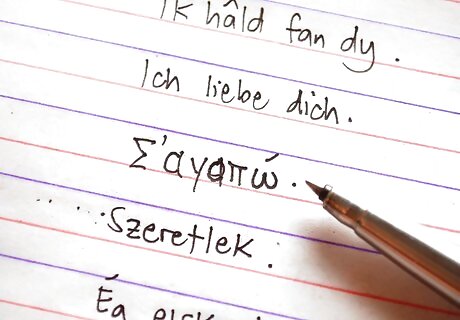 Ik hâld fan dy.
Ich liebe dich.
Σ'αγαπώ.
Szeretlek.
Éa elsk